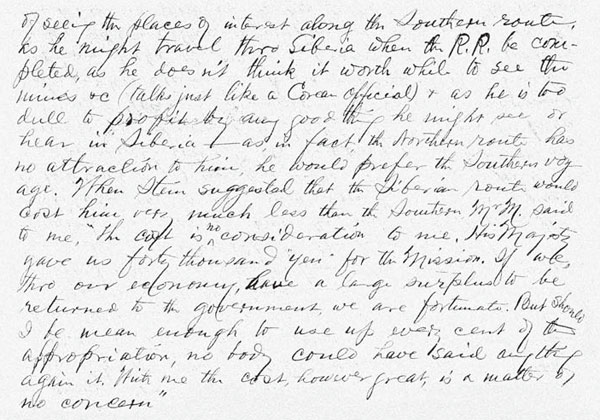 of seeing the places of interest along the Southern route,
as he might travel thro Siberia when the R.R. be com-
pleted, as he doesn't think it worth while to see the
mines &c (talks just like a Corean official) & as he is too
dull to profit by any good thing he might see or
hear in Siberia & as in fact the Northern route has
no attraction to him, he would prefer the Southern voy
age. When Stein suggested that the Siberian route would
cost him very much less than the Southern Mr M. said
to me, "The cost is no consideration to me. His Majesty
gave us forty thousand yen for the Mission. If we,
thro our economy, have a large surplus to be
returned to the government, we are fortunate. But should
I be mean enough to use up every cent of the
appropriation, no body could have said anything
again it. With me the cost, however great, is a matter of
no concern"